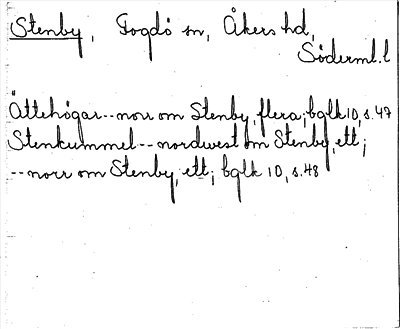 Stenby, Fogdö sn, Åkers hd,
Söderml. l
Ättehögar--norr om Stenby, flera; bglk 10, s. 47
Stenkummel--nordwest om Stenby, ett;
--norr om Stenby, ett; bglk 10, s. 48